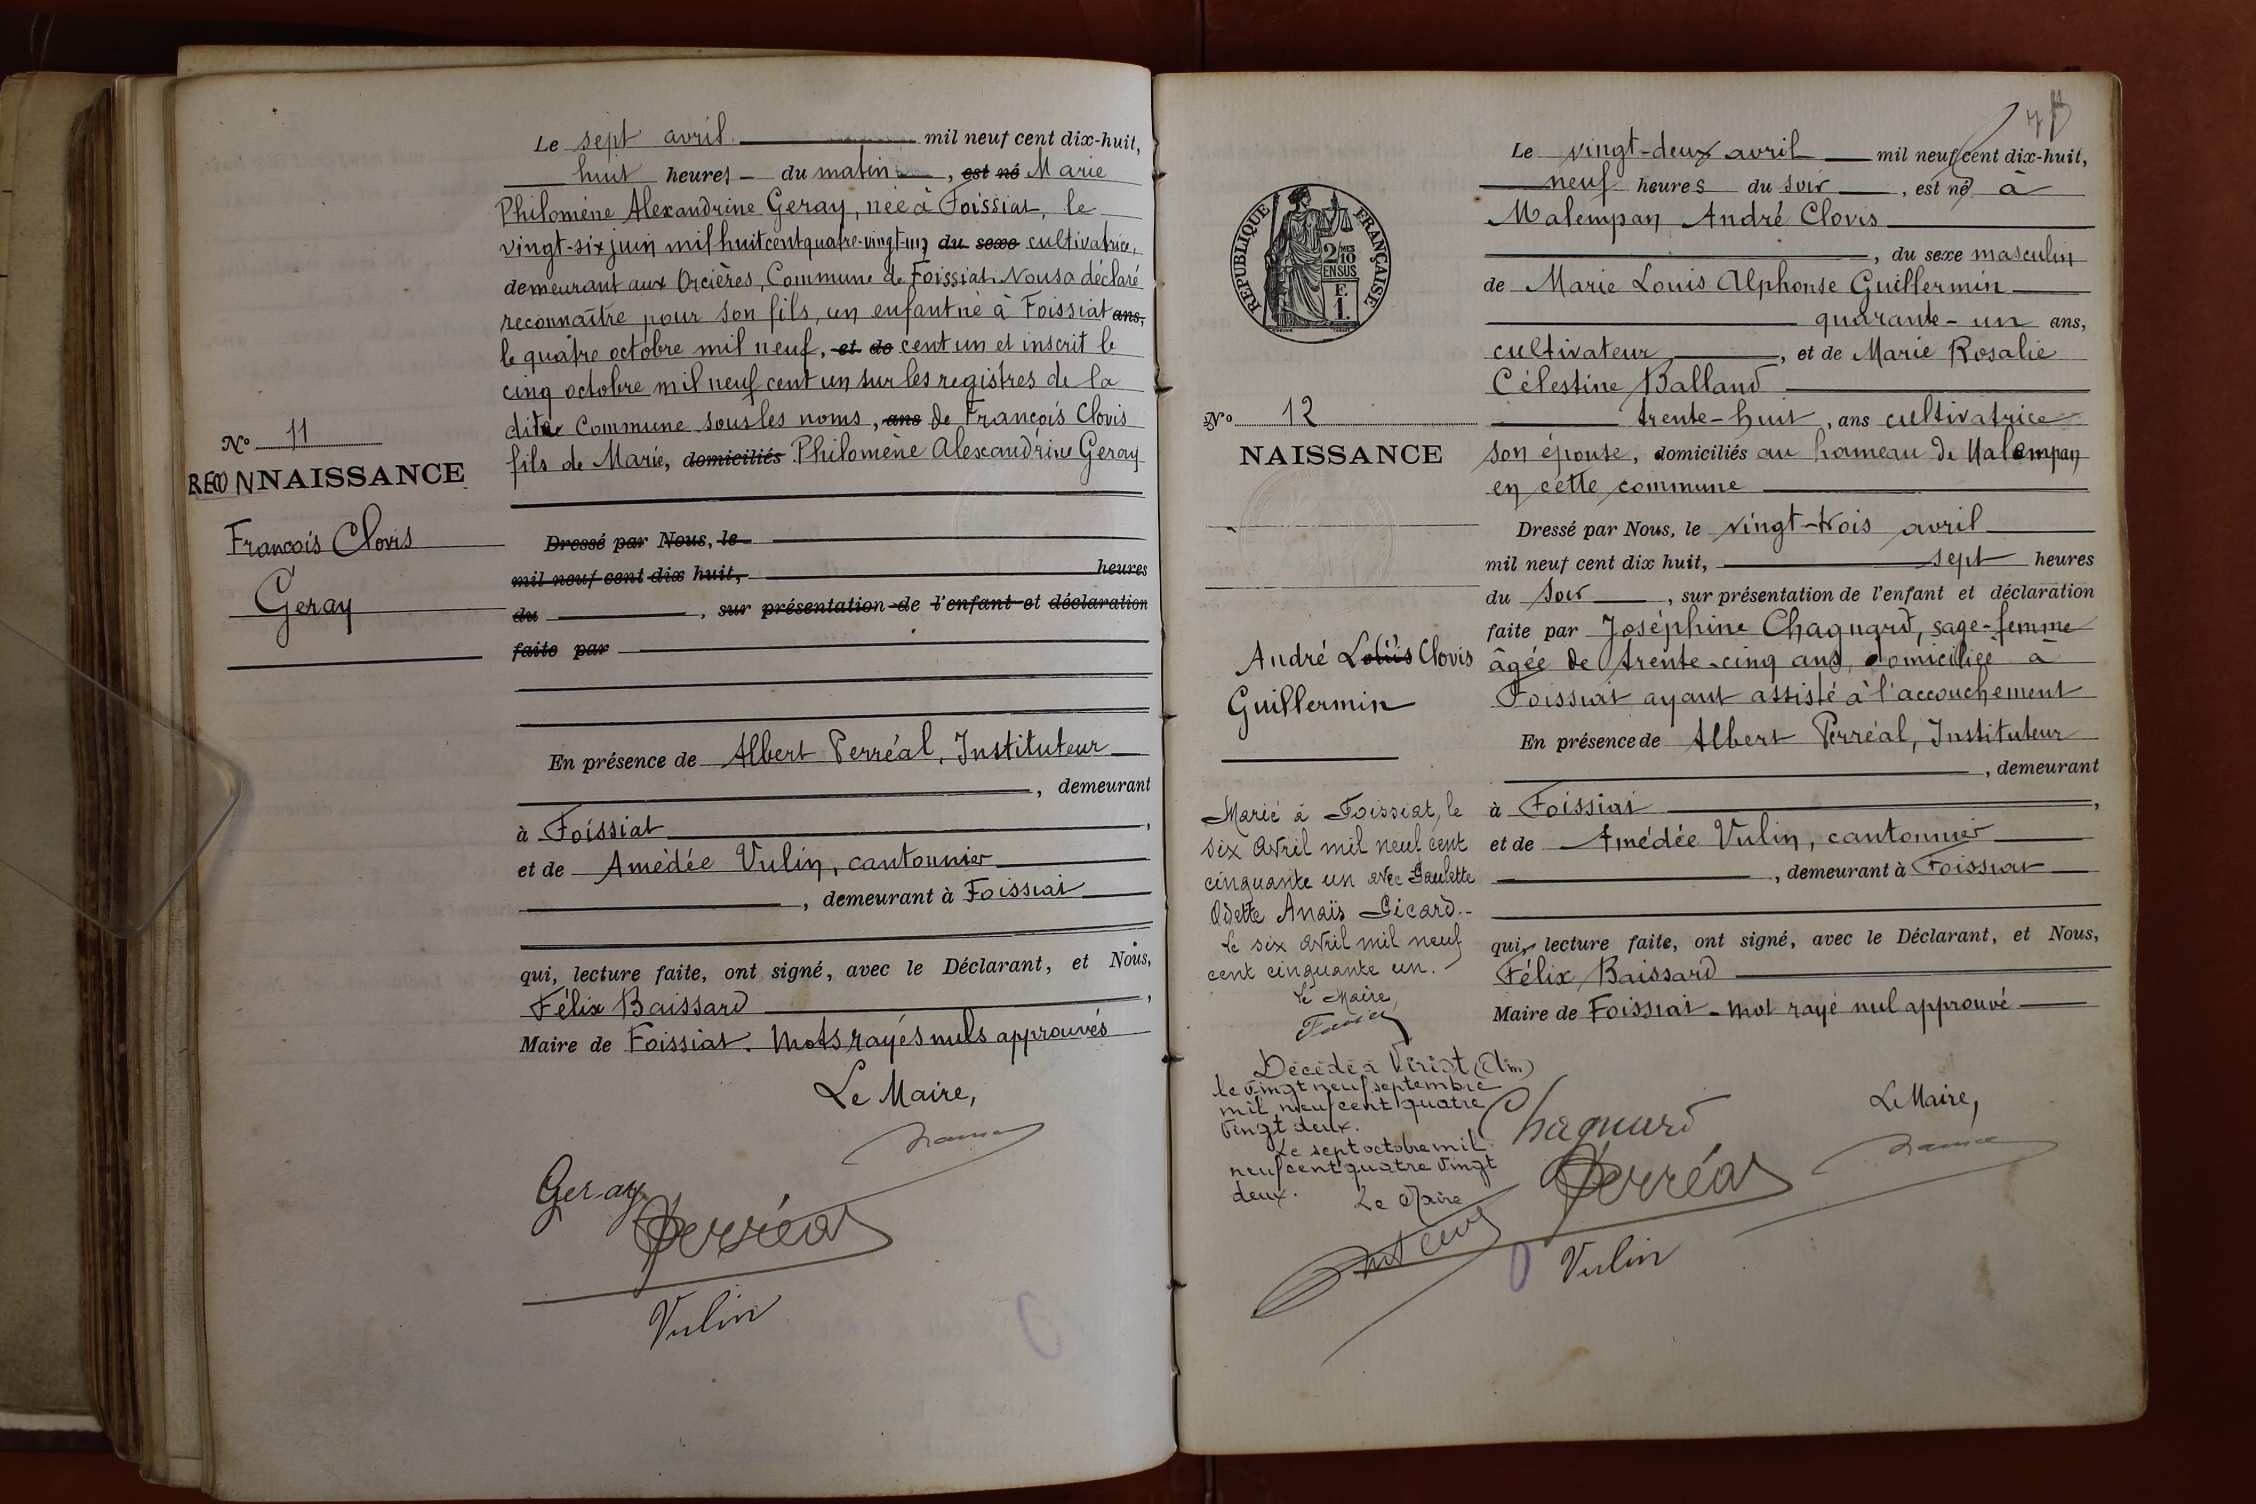 Le sept avril mil neuf cent dix-huit,
huit heures du matin, est né Marie
Philomène Alexandrine Geray, née à Foissiat, le
vingt-six juin mil huit cent quatre-vingt-un du sexe cultivatrice,
demeurant aux Orcières, Commune de Foissiat. Nous a déclaré
reconnaître pour son fils, un enfant né à Foissiat ans,
le quatre octobre mil neuf, et de cent un et inscrit le
cinq octobre mil neuf cent un sur les registres de la
dite Commune sous les noms, ans de François Clovis
fils de Marie, domiciliés Philomène Alexandrine Geray
No 11
RECONNAISSANCE
François Clovis
Geray
Dressé par Nous, le
mil neuf cent dix huit, heures
du , sur présentation de l'enfant et déclaration
faite par
En présence de Albert Perréal, Instituteur
, demeurant
à Foissiat ,
et de Amédée Vulin, cantonnier
, demeurant à Foissiat
qui, lecture faite, ont signé, avec le Déclarant, et Nous,
Félix Baissard ,
Maire de Foissiat. Mots rayés nuls approuvés
Le Maire,
Geray
Perréal
Vulin
RÉPUBLIQUE FRANÇAISE
2/10 MES
EN SUS
F.
1.
Le vingt-deux avril mil neuf cent dix-huit,
neuf heures du soir , est né à
Malempan André Clovis
, du sexe masculin
de Marie Louis Alphonse Guillermin
quarante-un ans,
cultivateur , et de Marie Rosalie
Célestine Balland
trente-huit, ans cultivatrice
son épouse, domiciliés au hameau de Malempan
en cette commune
No 12
NAISSANCE
André Louis Clovis
Guillermin
Dressé par Nous, le vingt-trois avril
mil neuf cent dix huit, sept heures
du soir , sur présentation de l'enfant et déclaration
faite par Joséphine Chagnard, sage-femme
âgée de trente-cinq ans, domiciliée à
Foissiat ayant assisté à l'accouchement
En présence de Albert Perréal, Instituteur
, demeurant
à Foissiat ,
et de Amédée Vulin, cantonnier
, demeurant à Foissiat
qui, lecture faite, ont signé, avec le Déclarant, et Nous,
Félix Baissard
Maire de Foissiat - mot rayé nul approuvé
Marié à Foissiat, le
six avril mil neuf cent
cinquante un avec Paulette
Odette Anaïs Sicard.-
Le six avril mil neuf
cent cinquante un.
Le Maire,
Décédé à Viriat (Ain)
le vingt neuf septembre
mil neuf cent quatre
vingt deux.
Le sept octobre mil
neuf cent quatre vingt
deux.
Le Maire
Le Maire,
Chagnard
Perréal
Vulin